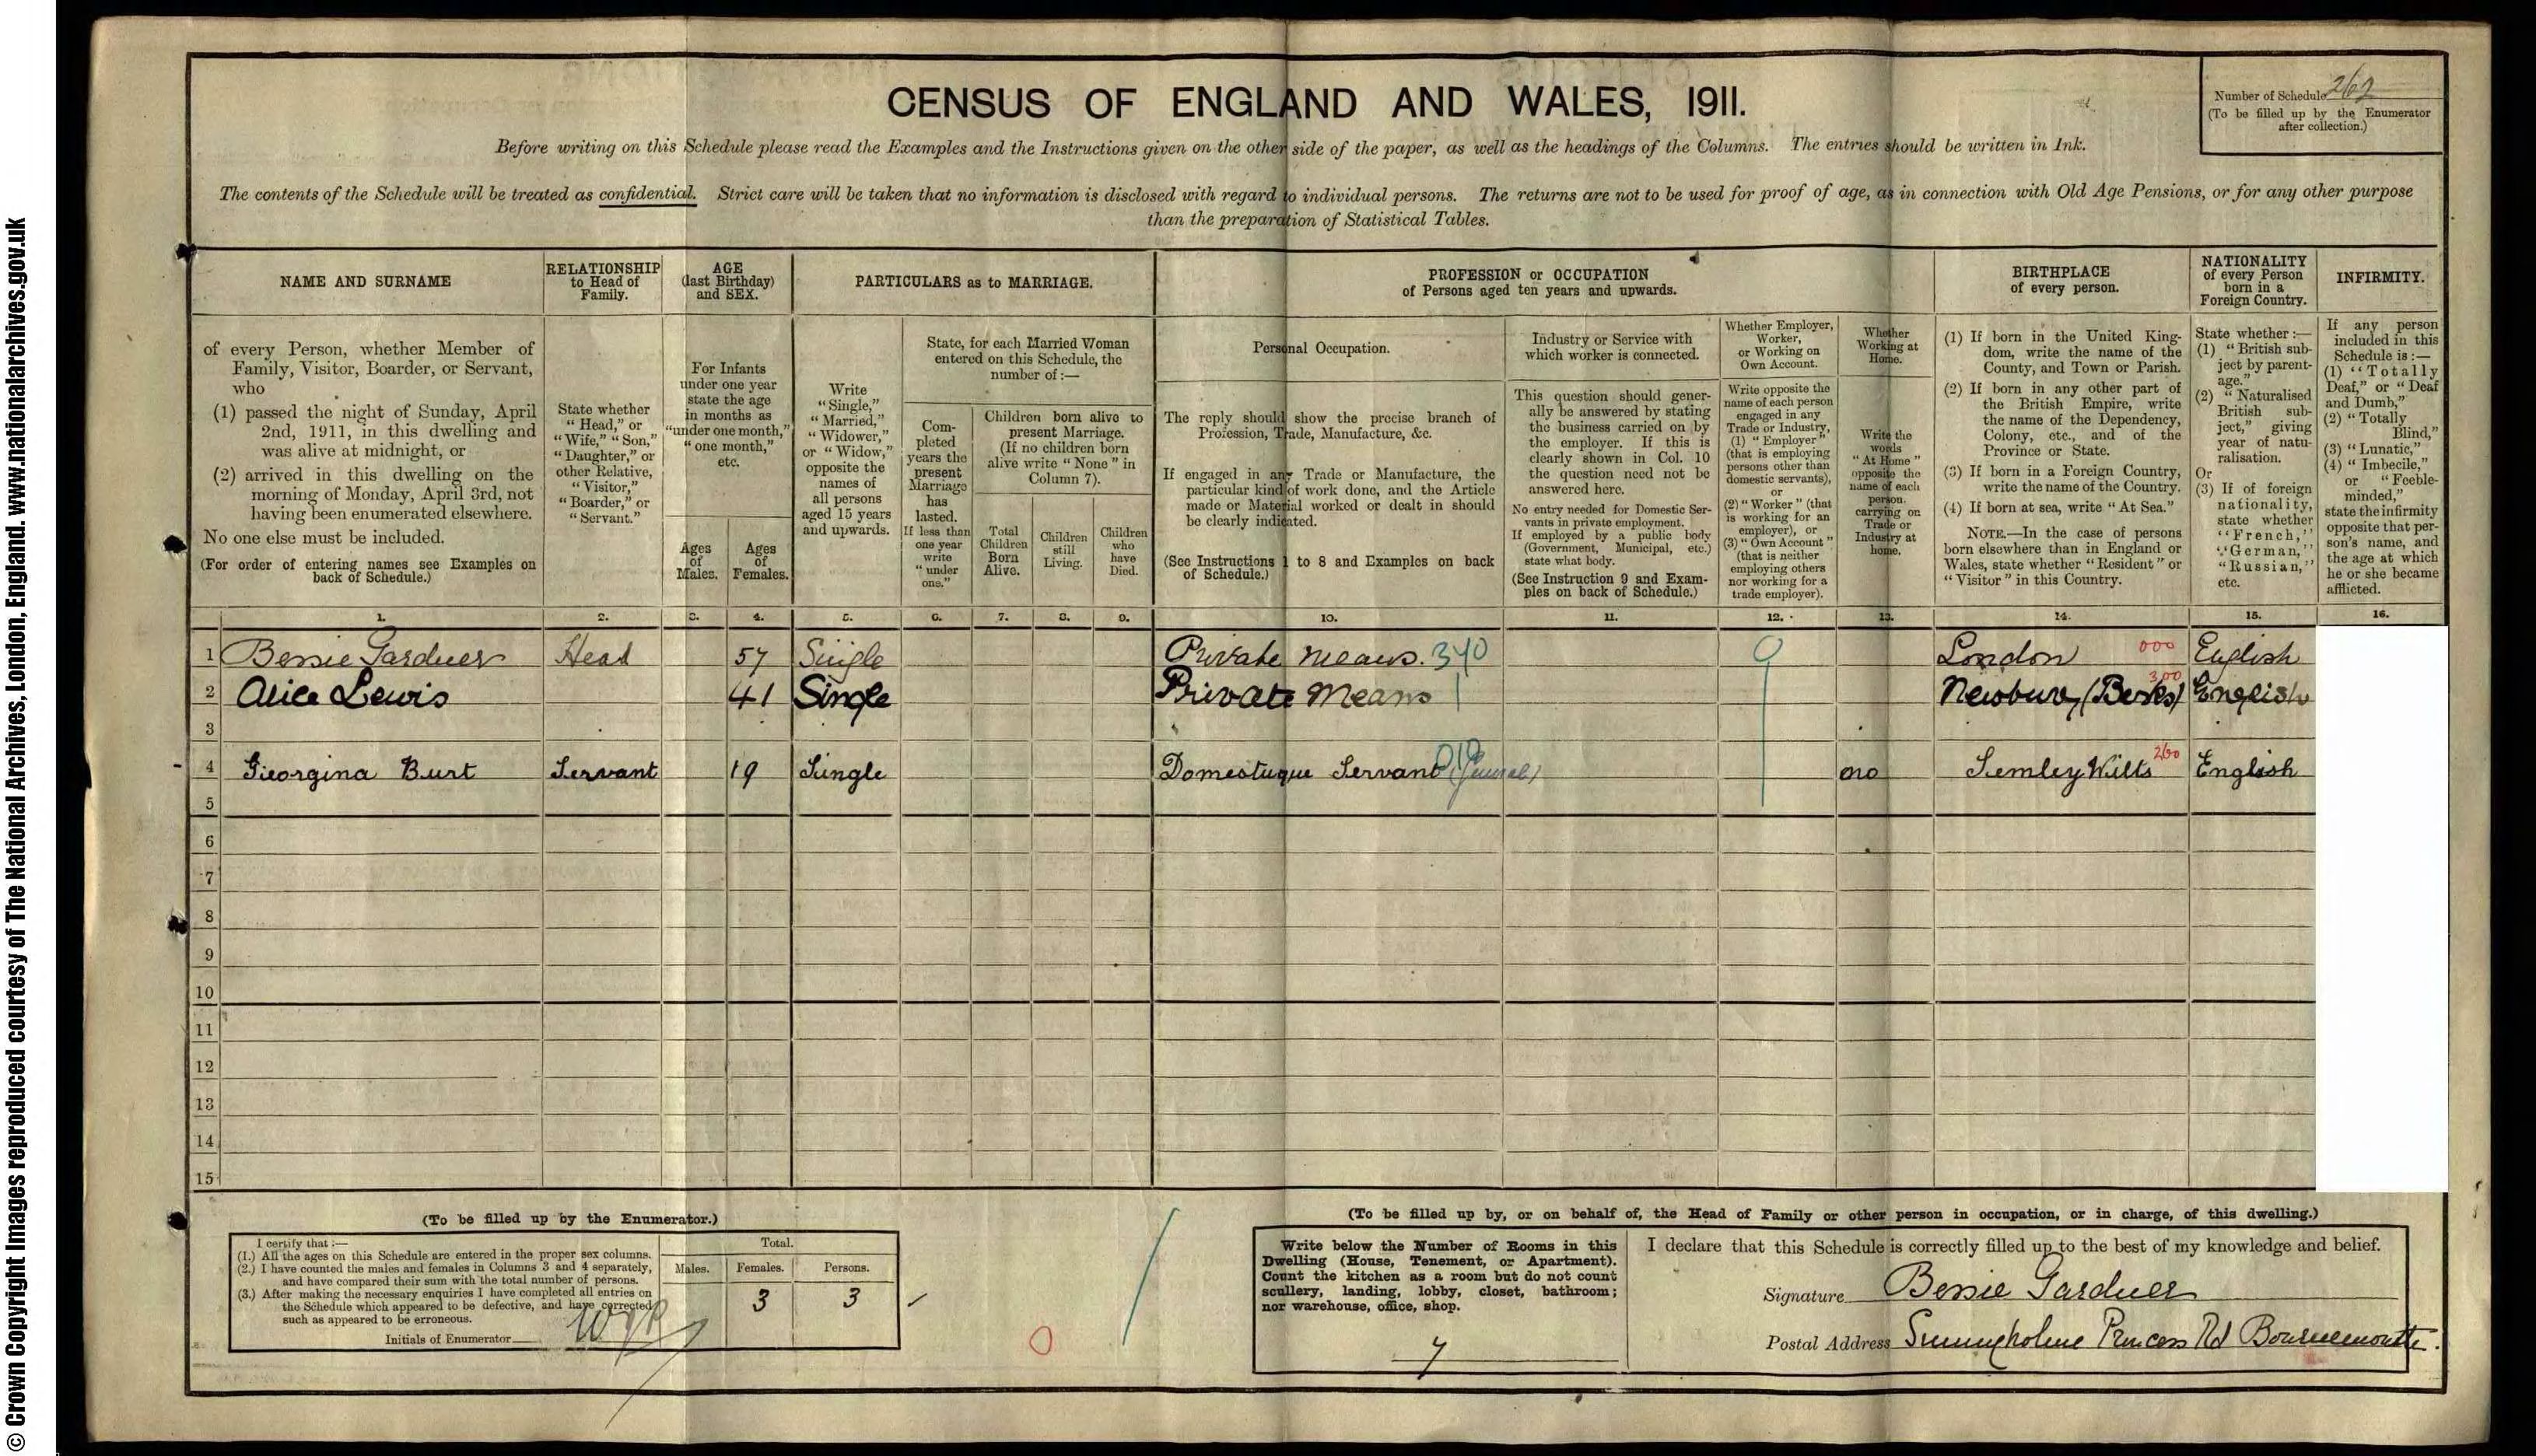 © Crown Copyright Images reproduced courtesy of The National Archives, London, England. www.nationalarchives.gov.uk
CENSUS OF ENGLAND AND WALES, 1911.
Number of Schedule 262
(To be filled up by the Enumerator
after collection.)
Before writing on this Schedule please read the Examples and the Instructions given on the other side of the paper, as well as the headings of the Columns. The entries should be written in Ink.
The contents of the Schedule will be treated as confidential. Strict care will be taken that no information is disclosed with regard to individual persons. The returns are not to be used for proof of age, as in connection with Old Age Pensions, or for any other purpose
than the preparation of Statistical Tables.
NAME AND SURNAME
of every Person, whether Member of
Family, Visitor, Boarder, or Servant,
who
(1) passed the night of Sunday, April
2nd, 1911, in this dwelling and
was alive at midnight, or
(2) arrived in this dwelling on the
morning of Monday, April 3rd, not
having been enumerated elsewhere.
No one else must be included.
(For order of entering names see Examples on
back of Schedule.)
RELATIONSHIP
to Head of
Family.
State whether
"Head," or
"Wife," "Son,"
"Daughter," or
other Relative,
"Visitor,"
"Boarder," or
"Servant."
AGE
(last Birthday)
and SEX.
For Infants
under one year
state the age
in months as
"under one month,"
"one month,"
etc.
Ages
of
Males.
Ages
of
Females.
PARTICULARS as to MARRIAGE.
Write
"Single,"
"Married,"
"Widower,"
or "Widow,"
opposite the
names of
all persons
aged 15 years
and upwards.
State, for each Married Woman
entered on this Schedule, the
number of :—
Com-
pleted
years the
present
Marriage
has
lasted.
If less than
one year
write
"under
one."
Children born alive to
present Marriage.
(If no children born
alive write "None" in
Column 7).
Total
Children
Born
Alive.
Children
still
Living.
Children
who
have
Died.
PROFESSION or OCCUPATION
of Persons aged ten years and upwards.
Personal Occupation.
The reply should show the precise branch of
Profession, Trade, Manufacture, &c.
If engaged in any Trade or Manufacture, the
particular kind of work done, and the Article
made or Material worked or dealt in should
be clearly indicated.
(See Instructions 1 to 8 and Examples on back
of Schedule.)
Industry or Service with
which worker is connected.
This question should gener-
ally be answered by stating
the business carried on by
the employer. If this is
clearly shown in Col. 10
the question need not be
answered here.
No entry needed for Domestic Ser-
vants in private employment.
If employed by a public body
(Government, Municipal, etc.)
state what body.
(See Instruction 9 and Exam-
ples on back of Schedule.)
Whether Employer,
Worker,
or Working on
Own Account.
Write opposite the
name of each person
engaged in any
Trade or Industry,
(1) "Employer"
(that is employing
persons other than
domestic servants),
or
(2) "Worker" (that
is working for an
employer), or
(3) "Own Account"
(that is neither
employing others
nor working for a
trade employer).
Whether
Working at
Home.
Write the
words
"At Home"
opposite the
name of each
person
carrying on
Trade or
Industry at
home.
BIRTHPLACE
of every person.
(1) If born in the United King-
dom, write the name of the
County, and Town or Parish.
(2) If born in any other part of
the British Empire, write
the name of the Dependency,
Colony, etc., and of the
Province or State.
(3) If born in a Foreign Country,
write the name of the Country.
(4) If born at sea, write "At Sea."
NOTE.—In the case of persons
born elsewhere than in England or
Wales, state whether "Resident" or
"Visitor" in this Country.
NATIONALITY
of every Person
born in a
Foreign Country.
State whether :—
(1) "British sub-
ject by parent-
age."
(2) "Naturalised
British sub-
ject," giving
year of natu-
ralisation.
Or
(3) If of foreign
nationality,
state whether
"French,"
"German,"
"Russian,"
etc.
INFIRMITY.
If any person
included in this
Schedule is :—
(1) "Totally
Deaf," or "Deaf
and Dumb,"
(2) "Totally
Blind,"
(3) "Lunatic,"
(4) "Imbecile,"
or "Feeble-
minded,"
state the infirmity
opposite that per-
son's name, and
the age at which
he or she became
afflicted.
1. 2. 3. 4. 5. 6. 7. 8. 9. 10. 11. 12. 13. 14. 15. 16.
1 Bessie Gardner Head 57 Single Private Means. 340 London 000 English
2 Alice Lewis 41 Single Private Means Newbury (Berks) 300 English
3
4 Georgina Burt Servant 19 Single Domestuque Servant (General) 010 no Semley Wilts 260 English
5
6
7
8
9
10
11
12
13
14
15
(To be filled up by the Enumerator.)
I certify that :—
(1.) All the ages on this Schedule are entered in the proper sex columns.
(2.) I have counted the males and females in Columns 3 and 4 separately,
and have compared their sum with the total number of persons.
(3.) After making the necessary enquiries I have completed all entries on
the Schedule which appeared to be defective, and have corrected
such as appeared to be erroneous.
Initials of Enumerator
Total.
Males. Females. Persons.
3 3
0
(To be filled up by, or on behalf of, the Head of Family or other person in occupation, or in charge, of this dwelling.)
Write below the Number of Rooms in this
Dwelling (House, Tenement, or Apartment).
Count the kitchen as a room but do not count
scullery, landing, lobby, closet, bathroom;
nor warehouse, office, shop.
7
I declare that this Schedule is correctly filled up to the best of my knowledge and belief.
Signature Bessie Gardner
Postal Address Sunnyholme Princess Rd Bournemouth.